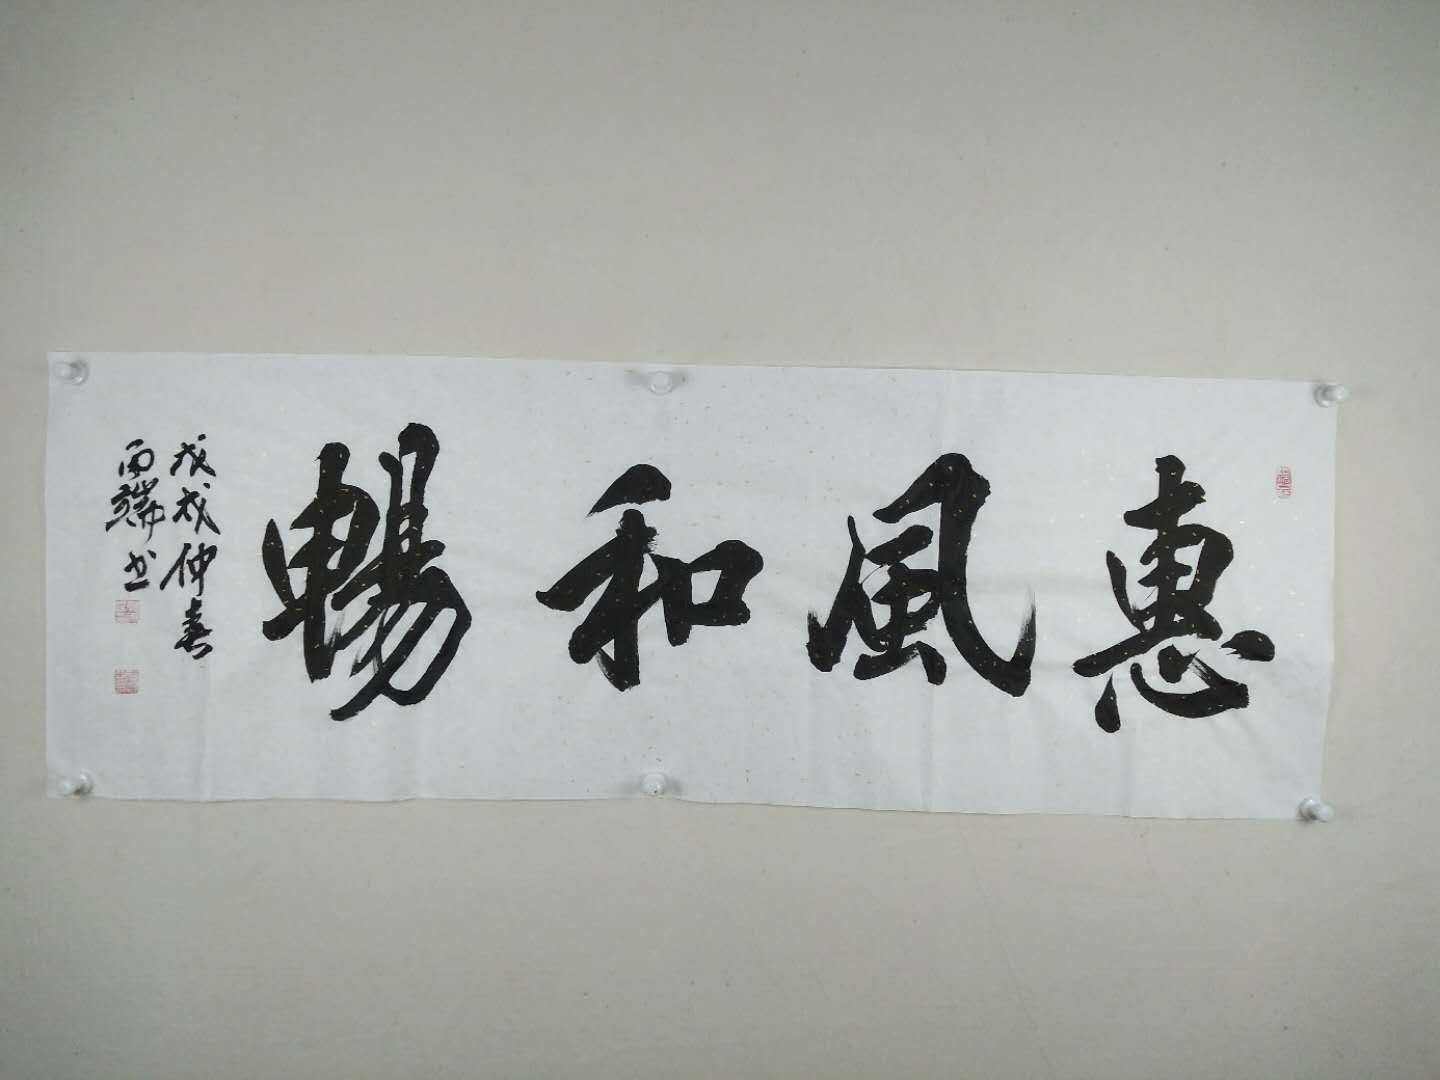 惠風和暢
戊戌仲春
雨端书